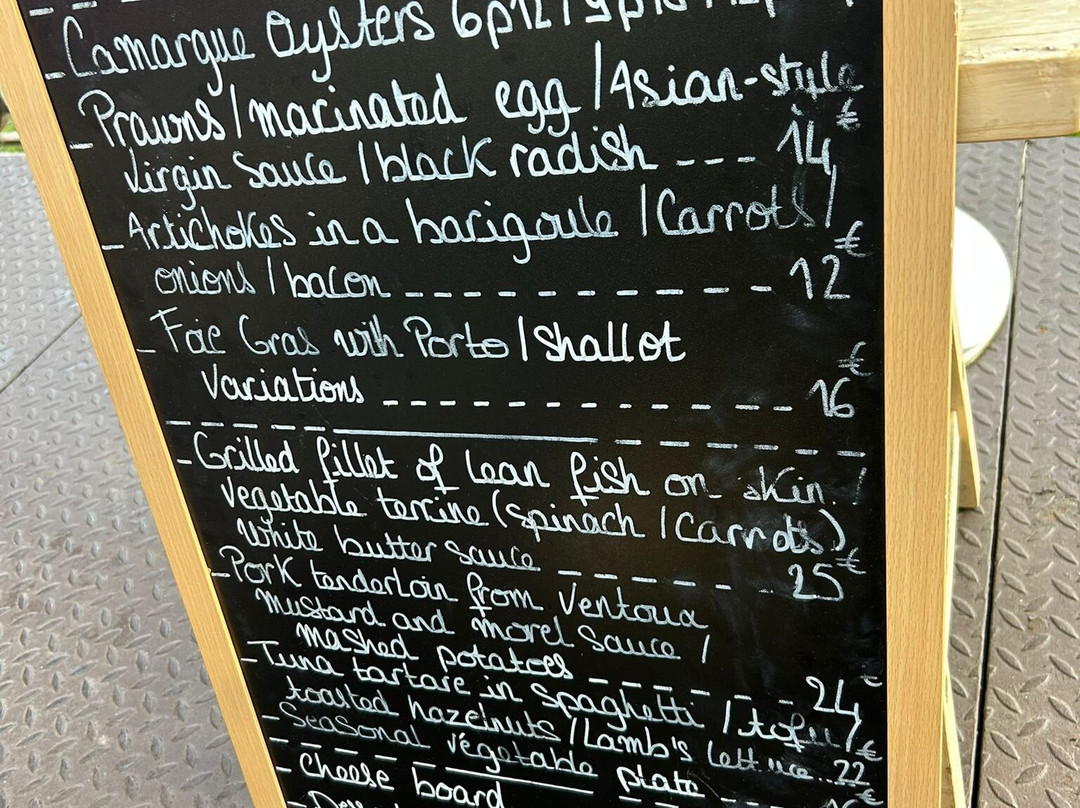 - Camargue Oysters 6p12 / 9p18
- Prawns / marinated egg / Asian-style
Virgin Sauce / black radish --- 14€
- Artichokes in a barigoule / Carrots /
onions / bacon ------------ 12€
- Foie Gras with Porto / Shallot
Variations -------------- 16€
- Grilled fillet of lean fish on skin /
Vegetable terrine (spinach / Carrots)
White butter sauce ------ 25€
- Pork tenderloin from Ventoux
Mustard and morel Sauce /
mashed potatoes ------ 24€
- Tuna tartare in spaghetti / tofu /
toasted hazelnuts / Lamb's lettuce .. 22€
- Seasonal végetable plate ---
- Cheese board